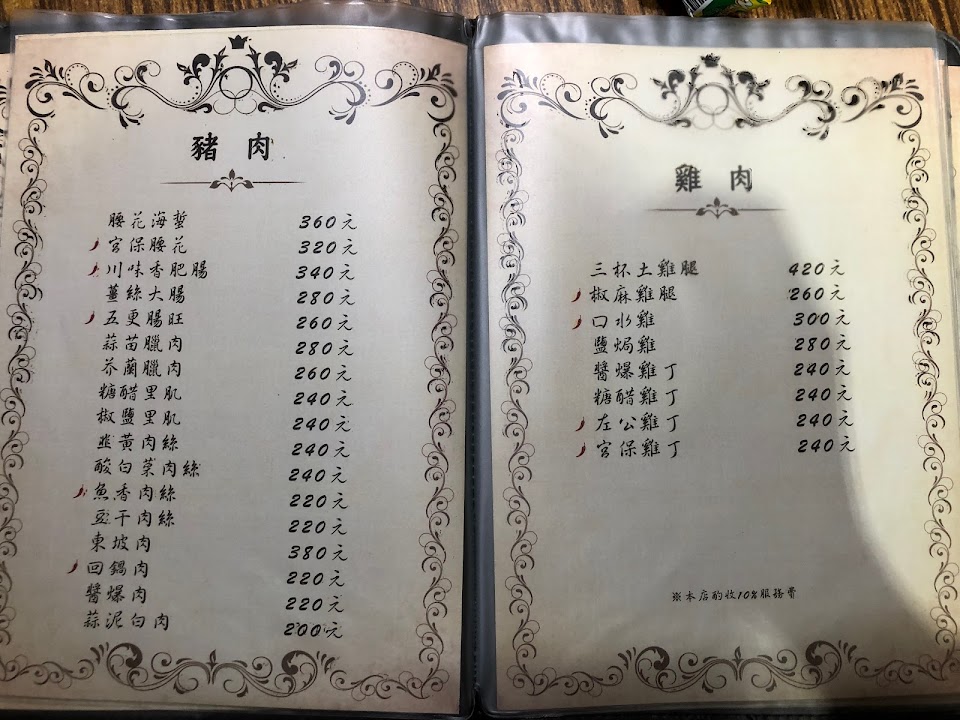 豬肉
腰花海蜇 360元
宮保腰花 320元
川味香肥腸 340元
薑絲大腸 280元
五更腸旺 260元
蒜苗臘肉 280元
芥蘭臘肉 260元
糖醋里肌 240元
椒鹽里肌 240元
韭黃肉絲 240元
酸白菜肉絲 240元
魚香肉絲 220元
豆干肉絲 220元
東坡肉 380元
回鍋肉 220元
醬爆肉 220元
蒜泥白肉 200元
雞肉
三杯土雞腿 420元
椒麻雞腿 260元
口水雞 300元
鹽焗雞 280元
醬爆雞丁 240元
糖醋雞丁 240元
左公雞丁 240元
宮保雞丁 240元
※本店酌收10%服務費